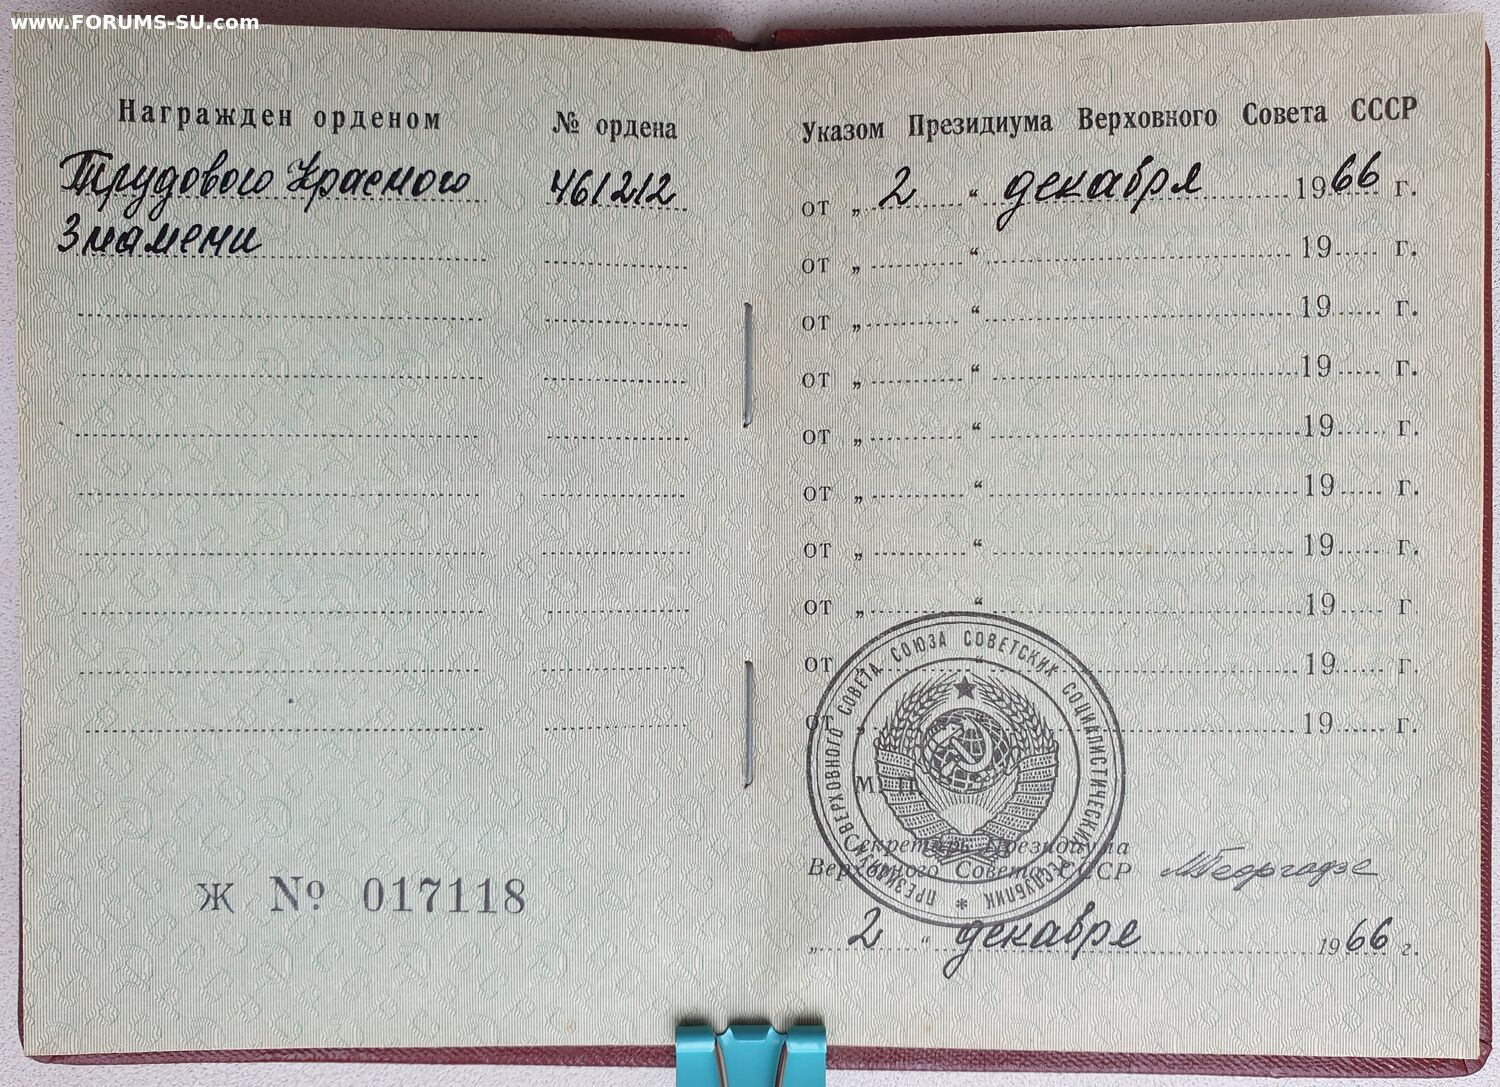 www.FORUMS-SU.com
Награжден орденом
№ ордена
Трудового Красного
461212
Знамени
Ж № 017118
Указом Президиума Верховного Совета СССР
от „ 2 “ декабря 1966 г.
от „ “ 19 г.
от „ “ 19 г.
от „ “ 19 г.
от „ “ 19 г.
от „ “ 19 г.
от „ “ 19 г.
от „ “ 19 г
от “ 19 г.
от „ 19 г.
ПРЕЗИДИУМ ВЕРХОВНОГО СОВЕТА СОЮЗА СОВЕТСКИХ СОЦИАЛИСТИЧЕСКИХ РЕСПУБЛИК *
М. П.
Секретарь Президиума
Верховного Совета СССР МГеоргадзе
„ 2 “ декабря 1966 г.